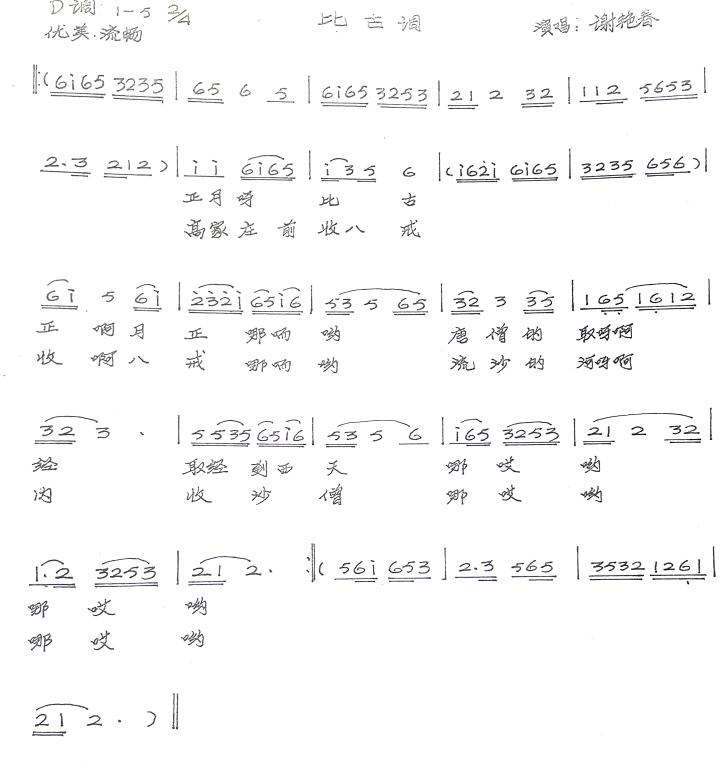 D调 1-5 2/4 比古调 演唱：谢艳春
优美.流畅
‖:(6i65 3235 | 65 6 5 | 6i65 3253 | 21 2 32 | 112 5653 |
2.3 212) | i i 6i65 | i35 6 |(i62i 6i65 | 3235 656)|
正月呀 比 古
高家庄前 收八 戒
6i 5 6i | 232i 65i6 | 53 5 65 | 32 3 35 | 165 1612 |
正 啊月 正 那响 哟 唐僧的 取呀啊
收 啊八 戒 哪响 哟 流沙的 河呀啊
32 3 . | 5535 65i6 | 53 5 6 | i65 3253 | 21 2 32 |
经 取经到西 天 哪 哎 哟
内 收 沙 僧 哪 哎 哟
1.2 3253 | 21 2. :‖( 56i 653 | 2.3 565 | 3532 1261 |
哪 哎 哟
哪 哎 哟
21 2. )‖